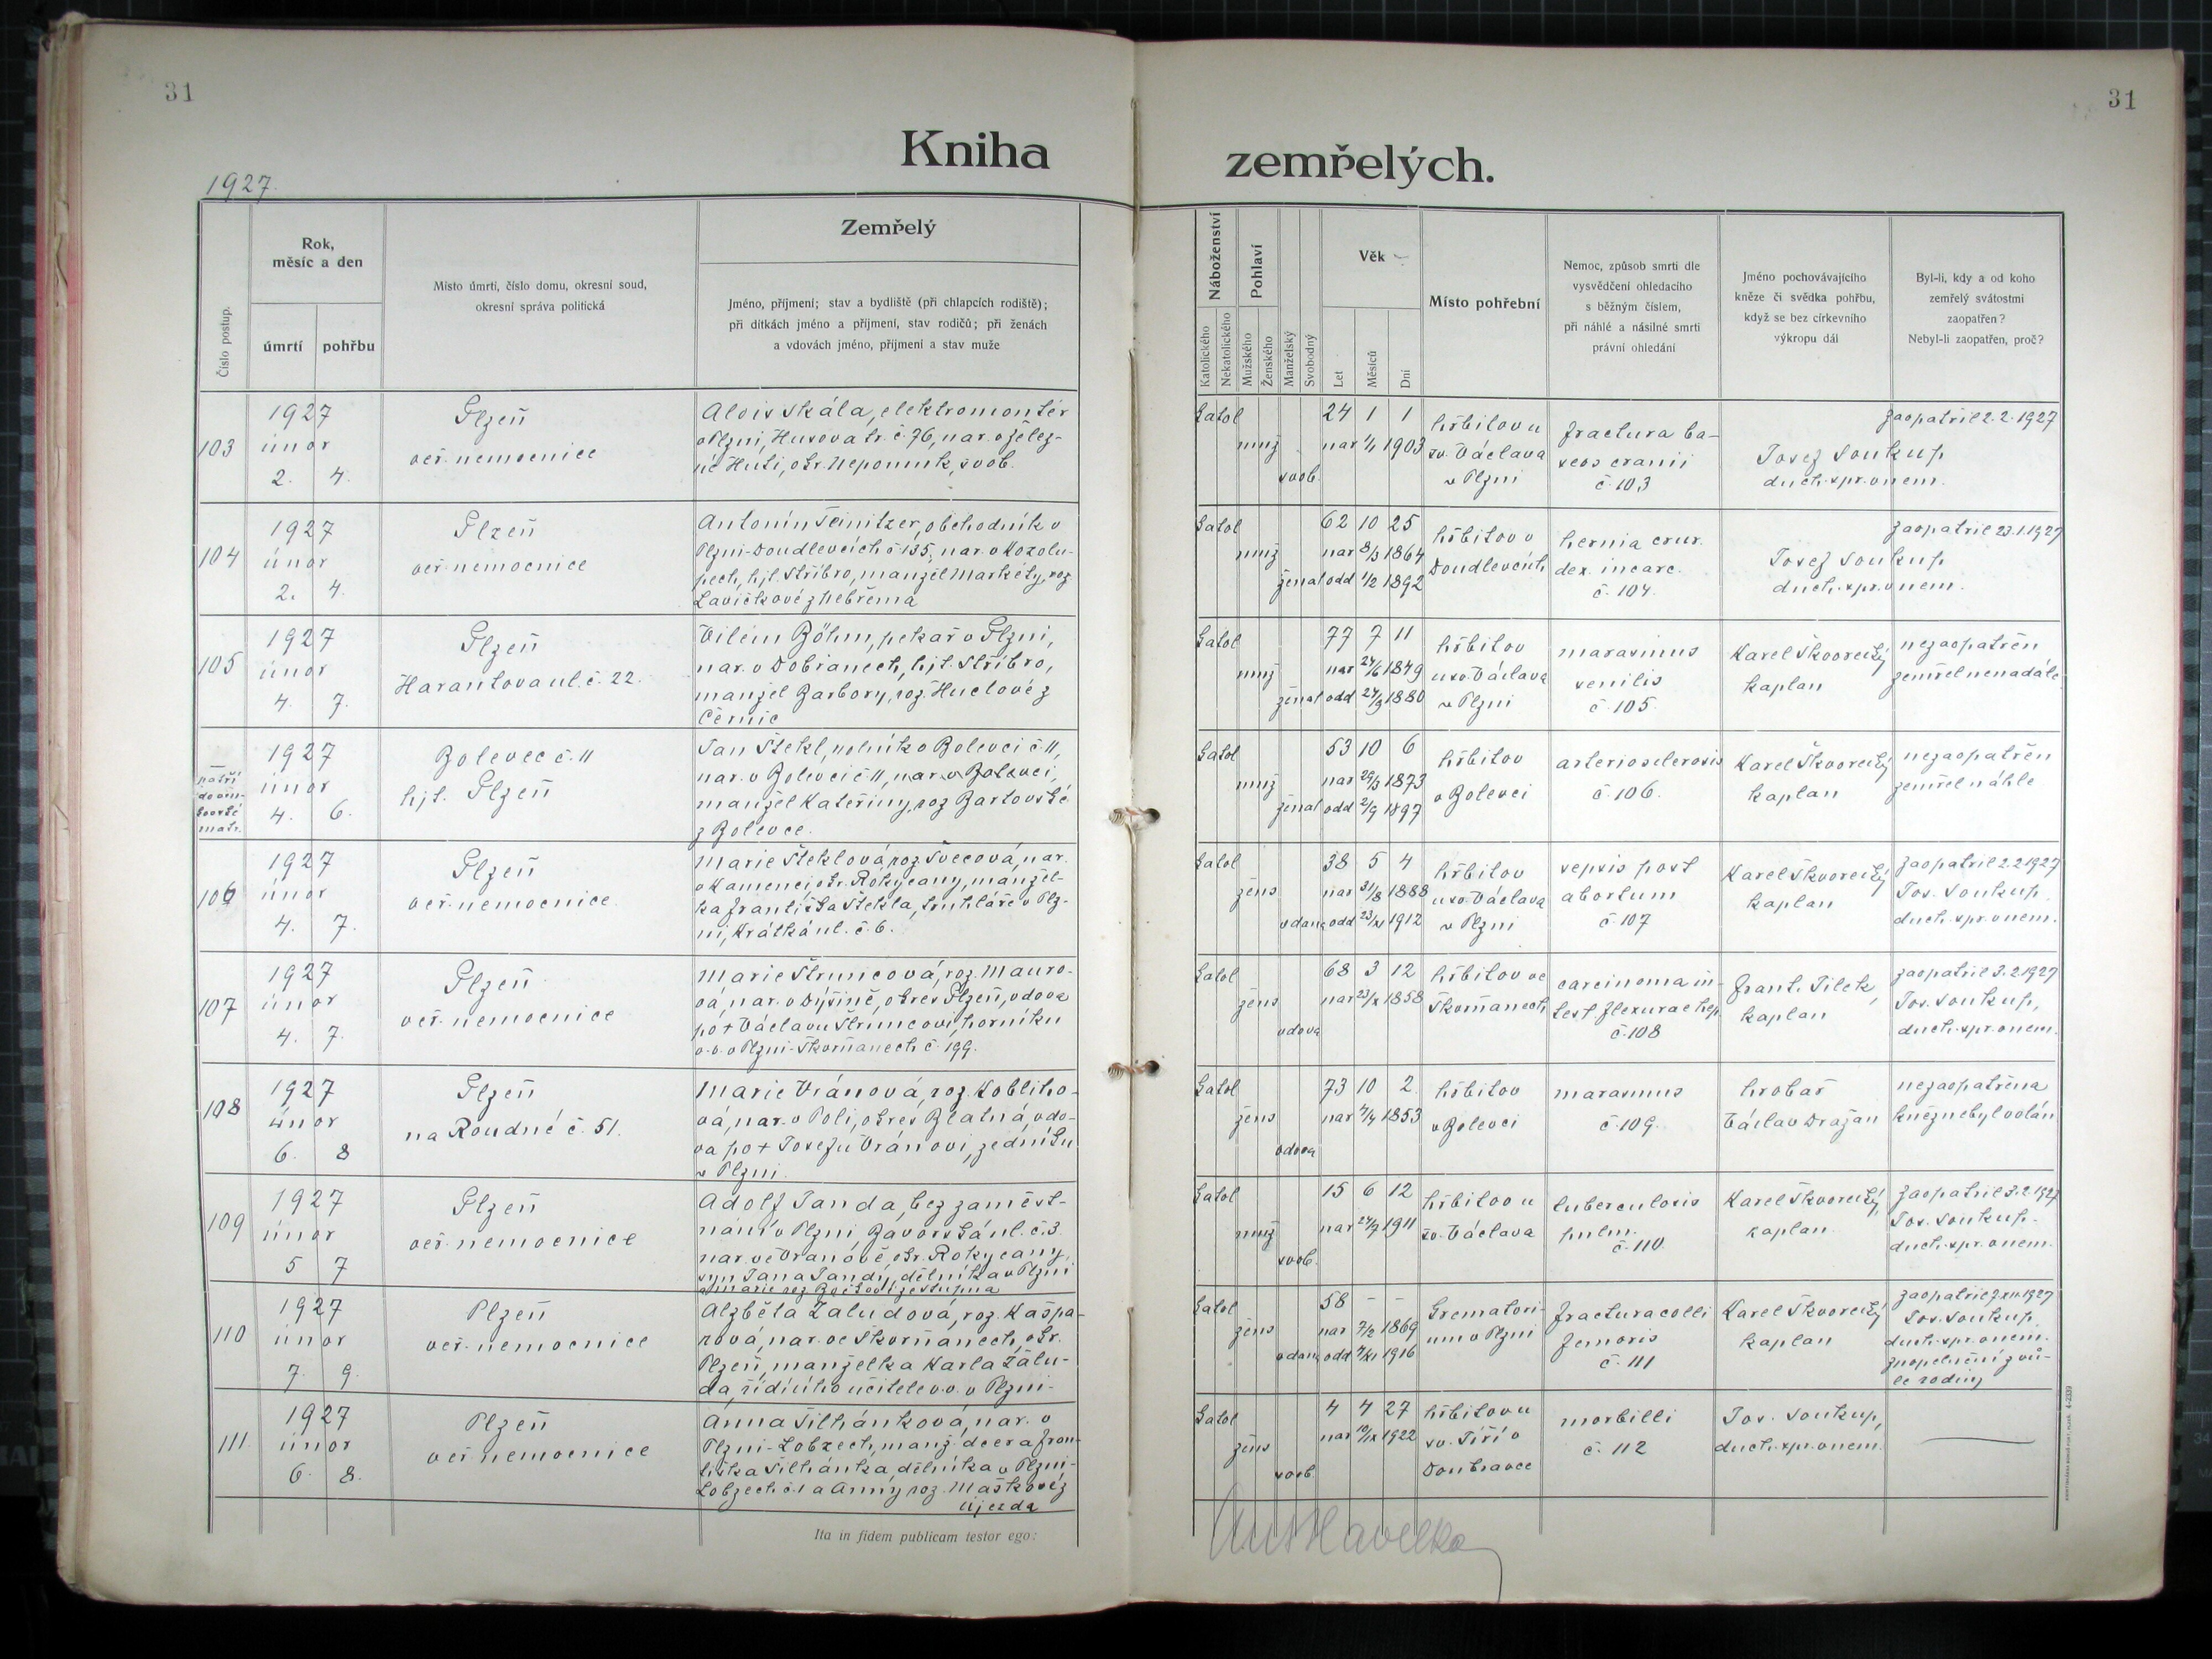 31
31
Kniha
zemřelých.
1927.
Číslo postup.
Rok,
měsíc a den
úmrtí
pohřbu
Místo úmrtí, číslo domu, okresní soud,
okresní správa politická
Zemřelý
Jméno, příjmení; stav a bydliště (při chlapcích rodiště);
při dítkách jméno a příjmení, stav rodičů; při ženách
a vdovách jméno, příjmení a stav muže
Náboženství
Katolického
Nekatolického
Pohlaví
Mužského
Ženského
Manželský
Svobodný
Věk
Let
Měsíců
Dní
Místo pohřební
Nemoc, způsob smrti dle
vysvědčení ohledacího
s běžným číslem,
při náhlé a násilné smrti
právní ohledání
Jméno pochovávajícího
kněze či svědka pohřbu,
když se bez církevního
výkropu dál
Byl-li, kdy a od koho
zemřelý svátostmi
zaopatřen?
Nebyl-li zaopatřen, proč?
103
1927
únor
2. 4.
Plzeň
veř. nemocnice
Alois Skála, elektromontér
v Plzni, Husova tř. č. 76, nar. v Želez-
né Huti, okr. Nepomuk, svob.
katol
muž
svob.
24 1 1
nar 1/1 1903
hřbitov u
sv. Václava
v Plzni
fractura ba-
seos cranii
č. 103
Josef Soukup
duch. spr. v nem.
zaopatřil 2. 2. 1927
104
1927
únor
2. 4.
Plzeň
veř. nemocnice
Antonín Teinitzer, obchodník v
Plzni-Doudlevcích č 135, nar. v Kozolu-
pech, hjt. Stříbro, manžel Markéty, roz
Lavičkové z Nebřema
katol
muž
ženat
62 10 25
nar 8/3 1864
odd 1/2 1892
hřbitov v
Doudlevcích
hernia crur.
dex. incarc.
č. 104.
Josef Soukup
duch. spr. v nem.
zaopatřil 23. 1. 1927
105
1927
únor
4. 7.
Plzeň
Harantova ul. č. 22.
Vilém Böhm, pekař v Plzni,
nar. v Dobřanech, hjt. Stříbro,
manžel Barbory, roz. Huclové z
Černic
katol
muž
ženat
77 7 11
nar 24/6 1849
odd 27/9 1880
hřbitov
u sv. Václava
v Plzni
marasmus
senilis
č. 105
Karel Škvorecký
kaplan
nezaopatřen
zemřel nenadále
patří
do om-
bovské
matr.
1927
únor
4. 6.
Bolevec č. 11
hjt. Plzeň
Jan Štekl, rolník v Bolevci č 11,
nar. v Bolevci č 11, nar. v Bolevci,
manžel Kateřiny, roz Bartovské
z Bolevce.
katol
muž
ženat
53 10 6
nar 29/3 1873
odd 2/9 1897
hřbitov
v Bolevci
arteriosclerosis
č. 106.
Karel Škvorecký
kaplan
nezaopatřen
zemřel náhle
106
1927
únor
4. 7.
Plzeň
veř. nemocnice
Marie Šteklová, roz. Švecová, nar.
v Kamenci, okr. Rokycany, manžel-
ka Františka Štekla, truhláře v Plz-
ni, Krátká ul. č. 6.
katol
žens
vdaná
38 5 4
nar 31/8 1888
odd 23/XI 1912
hřbitov
u sv. Václava
v Plzni
sepsis post
abortum
č. 107
Karel Škvorecký
kaplan
zaopatřil 2. 2. 1927
Jos. Soukup,
duch. spr. v nem.
107
1927
únor
4. 7.
Plzeň
veř. nemocnice
Marie Štruncová, roz. Mauro-
vá, nar. v Dýšině, okres Plzeň, vdova
po † Václavu Štruncovi, horníku
v. v. v Plzni-Skvrňanech č. 199.
katol
žens
vdova
68 3 12
nar 23/X 1858
hřbitov ve
Skvrňanech
carcinoma in-
test flexurae hep.
č. 108
Frant. Pilek,
kaplan
zaopatřil 3. 2. 1927
Jos. Soukup,
duch. spr. v nem.
108
1927
únor
6. 8
Plzeň
na Roudné č. 51.
Marie Vránová, roz. Kobliho-
vá, nar. v Poli, okres Blatná, vdo-
va po † Josefu Vránovi, zedníku
v Plzni.
katol
žens
vdova
73 10 2
nar 7/4 1853
hřbitov
v Bolevci
marasmus
č. 109.
hrobař
Václav Dražan
nezaopatřena
kněz nebyl volán
109
1927
únor
5 7
Plzeň
veř. nemocnice
Adolf Janda, bez zaměst-
nání v Plzni, Bavorská ul. č. 3.
nar. ve Vranově, okr. Rokycany,
syn Jana Jandy, dělníka v Plzni
a Marie roz ze Stupna
katol
muž
svob.
15 6 12
nar 24/7 1911
hřbitov u
sv. Václava
tuberculosis
pulm.
č. 110
Karel Škvorecký,
kaplan
zaopatřil 3. 2. 1927
Jos. Soukup.
duch. spr. v nem.
110
1927
únor
7. 9.
Plzeň
veř. nemocnice
Alžběta Žaludová, roz. Kašpa-
rová, nar. ve Skvrňanech, okr.
Plzeň, manželka Karla Žalu-
da, řídícího učitele v. v. v Plzni.
katol
žens
vdaná
58 - -
nar 7/2 1869
odd 7/XI 1916
Krematori-
um v Plzni
fractura colli
femoris
č. 111
Karel Škvorecký
kaplan
zaopatřil 7. XII. 1927
Jos. Soukup,
duch. spr. v nem.
zpopelnění z vů-
le rodiny
111
1927
únor
6. 8.
Plzeň
veř. nemocnice
Anna Šilhánková, nar. v
Plzni-Lobzech, manž. dcera Fran-
tiška Šilhánka, dělníka v Plzni-
Lobzech č. 1 a Anny roz. Maškové z
Újezda
katol
žens
svob
4 4 27
nar 10/IX 1922
hřbitov u
sv. Jiří v
Doubravce
morbilli
č. 112
Jos. Soukup,
duch. spr. v nem.
Ita in fidem publicam testor ego:
Ant Havelka